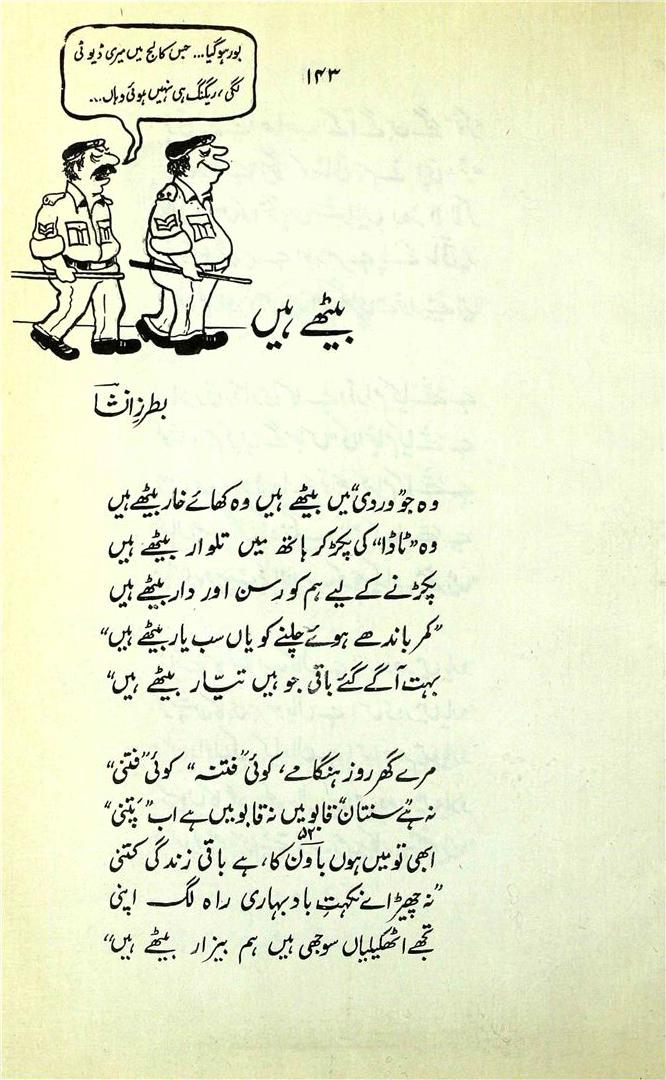 ۱۴۳
بور ہو گیا... جس کالج میں میری ڈیوٹی
لگی، ریگنگ ہی نہیں ہوئی وہاں...
بیٹھے ہیں
بطرزِ انشا
وہ جو "وردی" میں بیٹھے ہیں وہ کھائے خار بیٹھے ہیں
وہ "ٹاڈا" کی پکڑ کر ہاتھ میں تلوار بیٹھے ہیں
پکڑنے کے لیے ہم کو رسن اور دار بیٹھے ہیں
"کمر باندھے ہوئے چلنے کو یاں سب یار بیٹھے ہیں"
بہت آگے گئے باقی جو ہیں تیّار بیٹھے ہیں"
مرے گھر روز ہنگامے، کوئی "فتنہ" کوئی "فتنی"
نہ ہے "سنتان" قابو میں نہ قابو میں ہے اب "پتنی"
ابھی تو میں ہوں باون ۵۲ کا، ہے باقی زندگی کتنی
"نہ چھیڑ اے نکہتِ باد بہاری راہ لگ اپنی
تجھے اٹھکیلیاں سوجھی ہیں ہم بیزار بیٹھے ہیں"